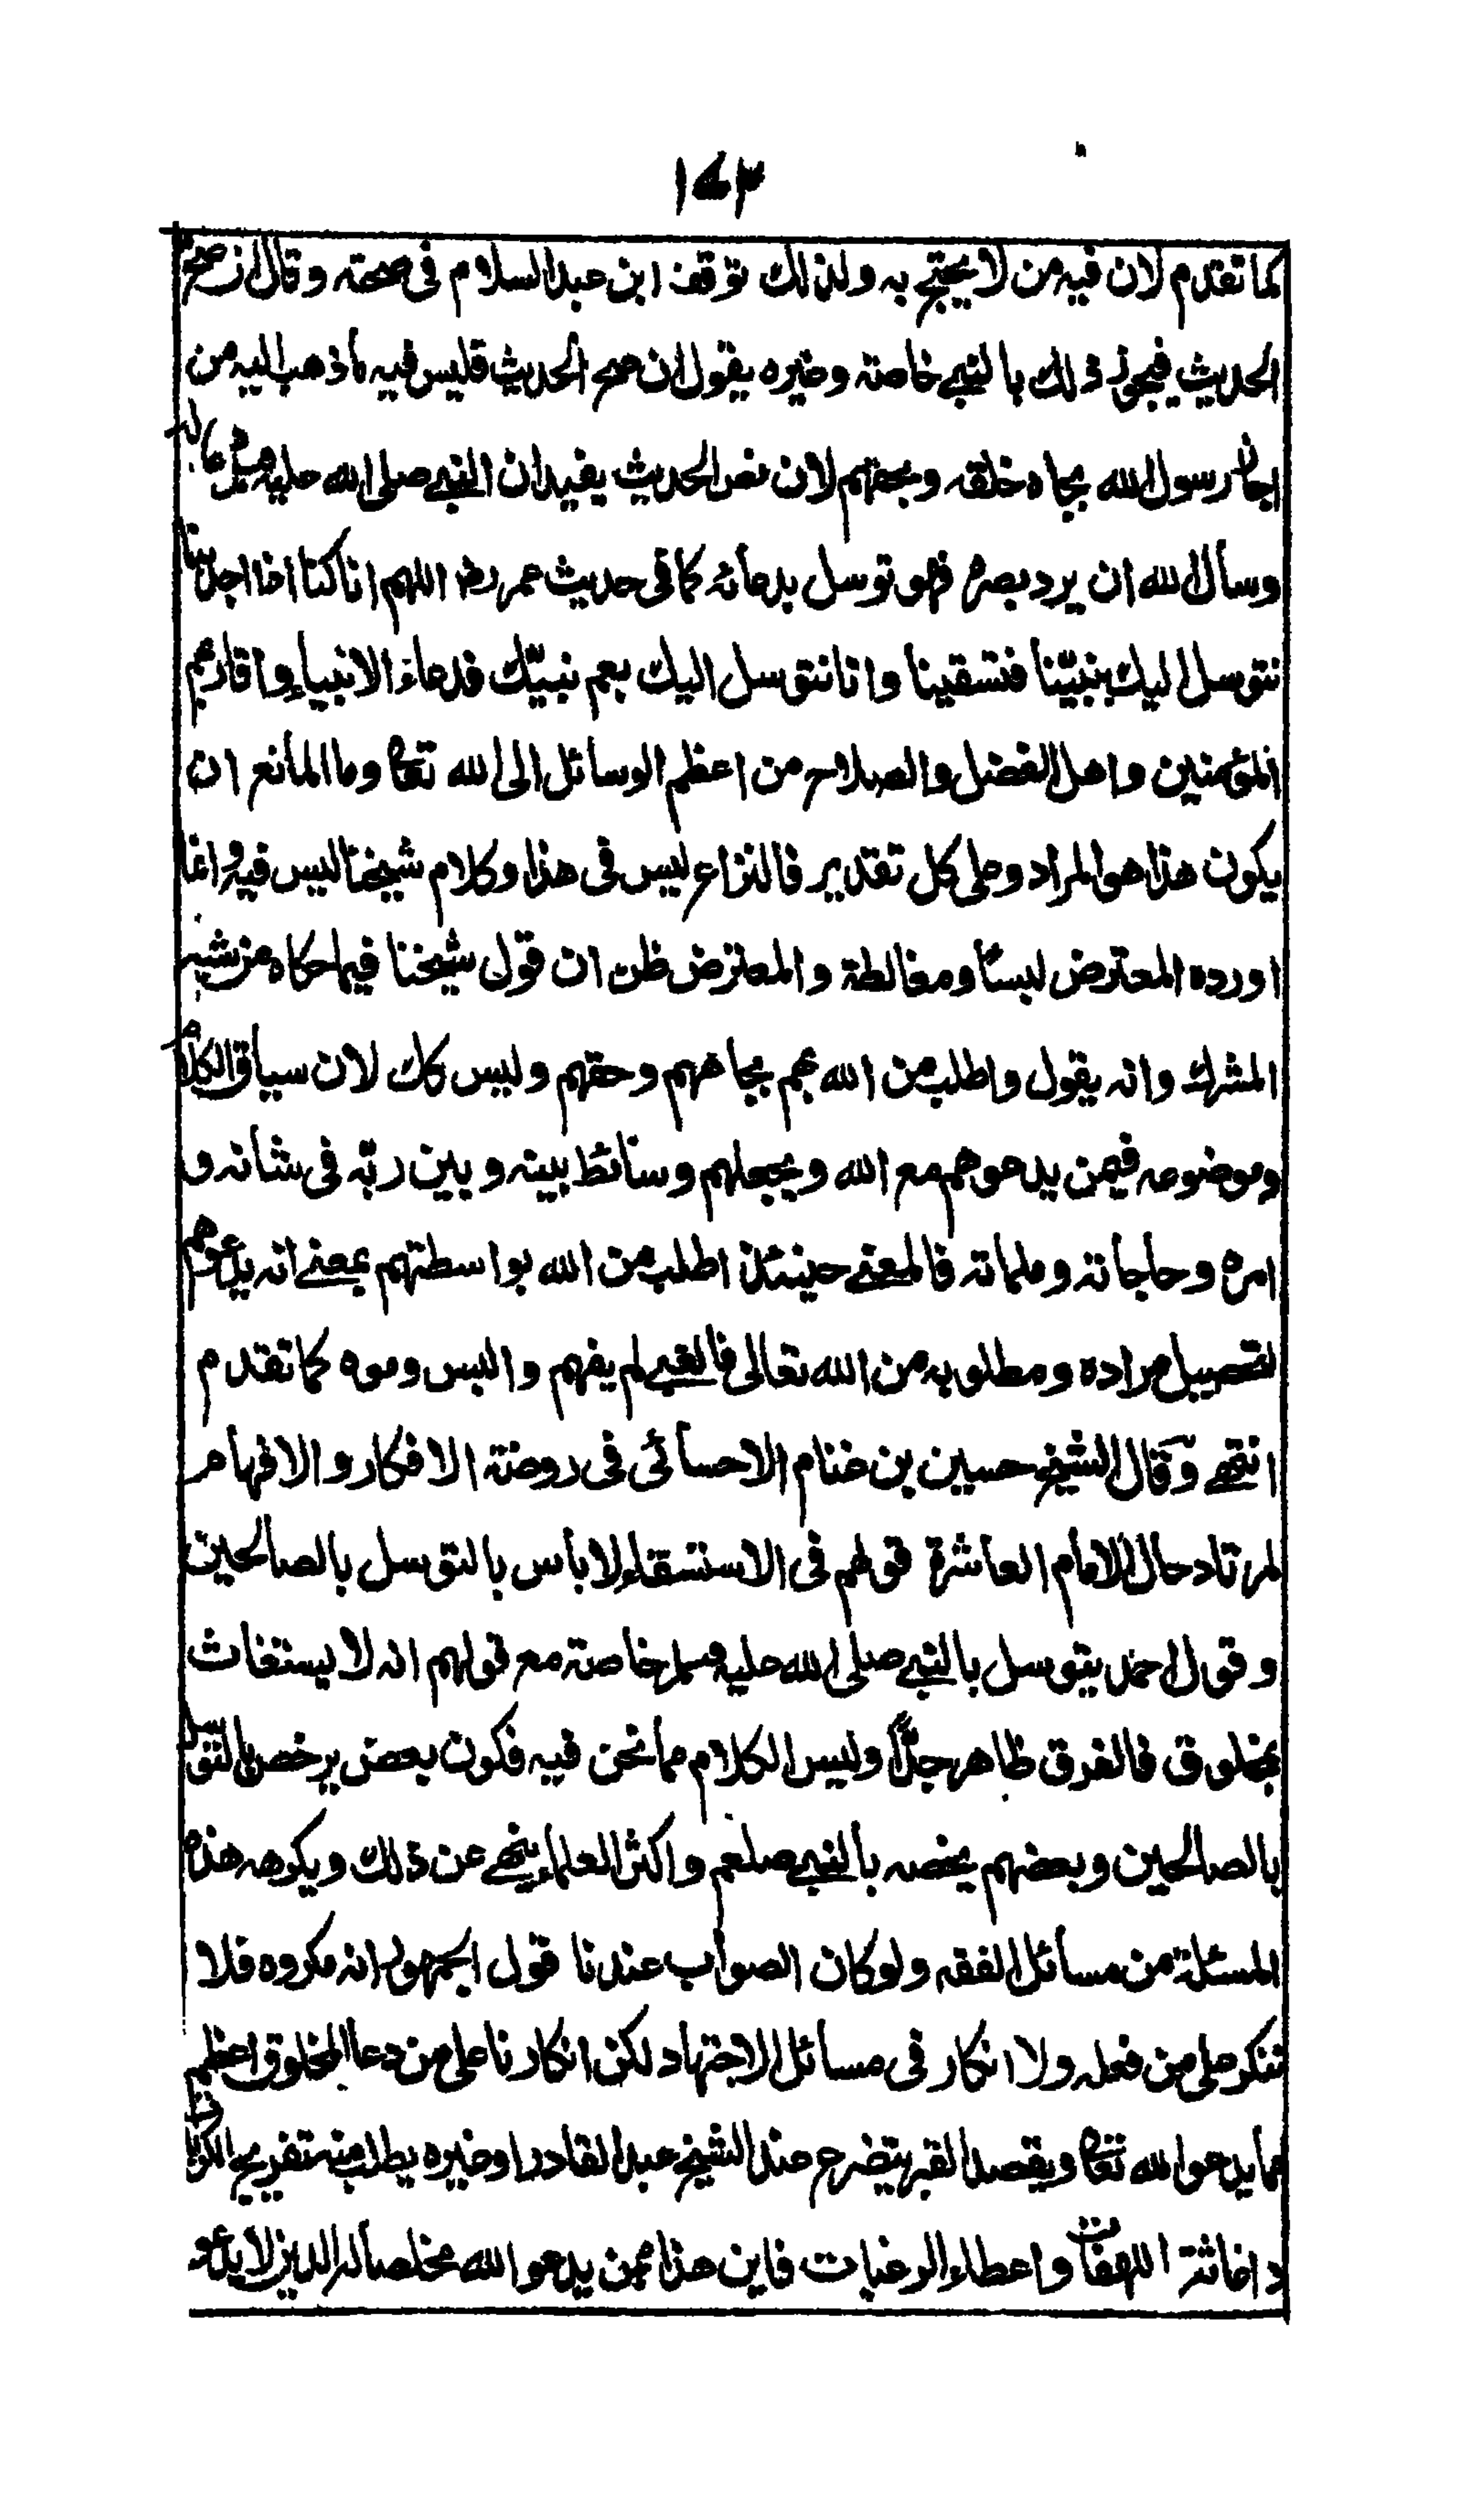 ١٧٣
كما تقدم لان فيه من لا يحتج به ولذلك توقف ابن عبدالسلام فى صحته وقال ان صح
الحديث فيجوز ذلك بالنبي خاصة وغيره يقول ان صح الحديث فليس فيه ما ذهب اليه من
رسول الله بجاه خلقه وبحقهم لان نص الحديث يفيد ان النبي صلى الله عليه وسلم دعا له
وسأل الله ان يرد بصره فهو توسل بدعائه كما فى حديث عمر رضـ اللهم انا كنا اذا اجدبنا
نتوسل اليك بنبيّنا فتسقينا وانا نتوسل اليك بعم نبيّك فدعاء الانبياء واقاربهم
المؤمنين واهل الفضل والصلاح من اعظم الوسائل الى الله تعا وما المانع ان
يكون هذا هو المراد وعلى كل تقدير فالنزاع ليس فى هذا وكلام شيخنا ليس فيه وانما
اورده المعترض لبسا ومغالطة والمعترض ظن ان قول شيخنا فيما حكاه من شبه
المشرك وانه يقول واطلب من الله بهم بجاههم وحقهم وليس كك لان سياق الكلام
وموضوعه فيمن يدعوهم مع الله ويجعلهم وسائط بينه وبين ربّه فى شانه و
امره وحاجاته وملماته فالمعنے حينئذ اطلب من الله بواسطتهم بمعنے انه يدعوهم
لتحصيل مراده ومطلوبه من الله تعالى فالغبي لم يفهم والبس وموه كما تقدم
انتهى وقال الشيخ حسين بن غنام الاحسائى فى روضة الافكار والافهام
لمرتاد حال الامام العاشرة قولهم فى الاستسقاء لا باس بالتوسل بالصالحين
وقول احمد يتوسل بالنبي صلى الله عليه وسلم خاصة مع قولهم انه لا يستغاث
بمخلوق فالفرق ظاهر جدًّا وليس الكلام مما نحن فيه فكون بعض يرخص بالتوسل
بالصالحين وبعضهم يخصه بالنبي صلعم واكثر العلماء ينهى عن ذلك ويكرهه هذه
المسئلة من مسائل الفقه ولو كان الصواب عندنا قول الجمهور انه مكروه فلا
ننكر على من فعله ولا انكار فى مسائل الاجتهاد لكن انكارنا على من دعا المخلوق اعظم
مما يدعو الله تعا ويقصد القبر يتضرع عند الشيخ عبد القادر او غيره يطلب منه تفريج الكربات
واغاثة اللهفات واعطاء الرغبات فاين هذا ممن يدعو الله مخلصا له الدين لا يدعو